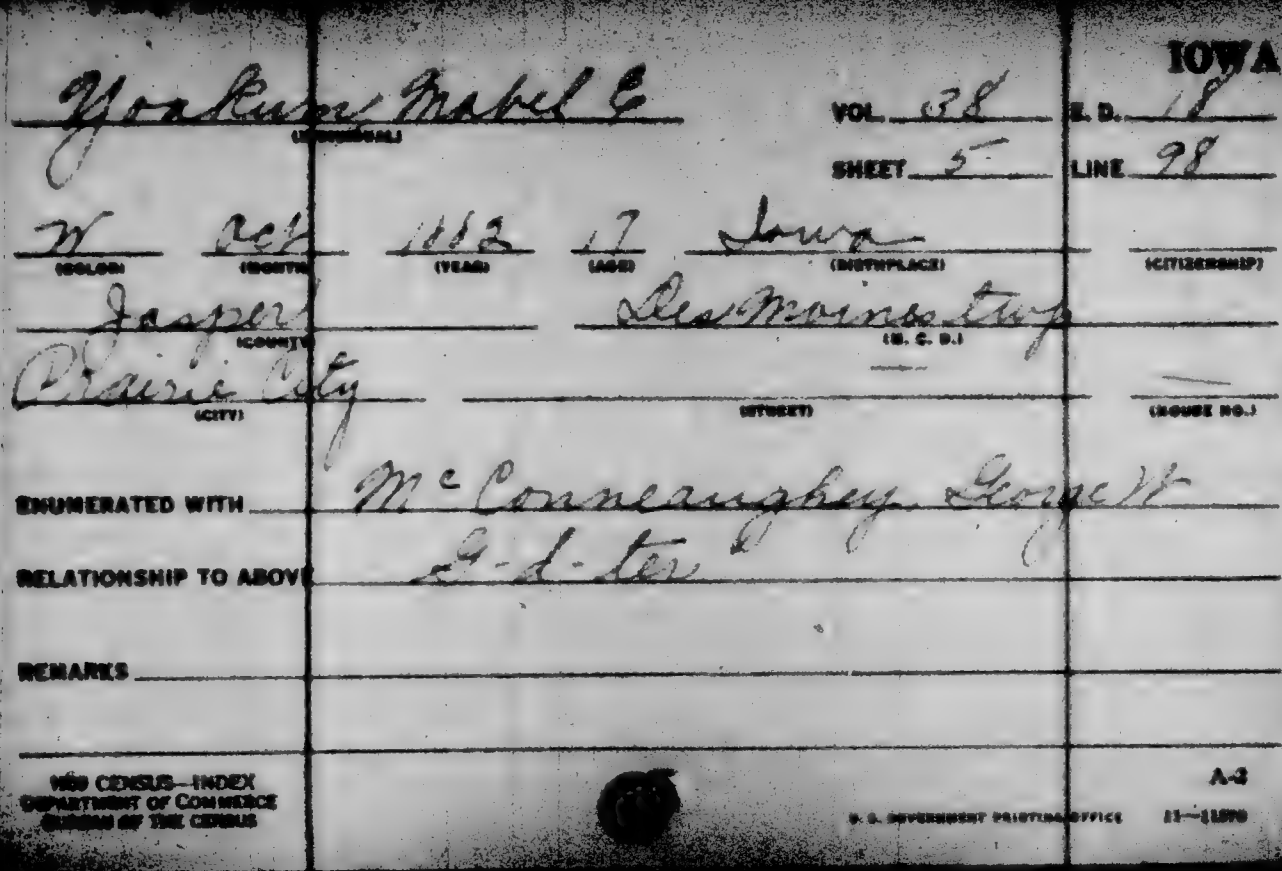 IOWA
Yoakum Mabel E
(INDIVIDUAL)
VOL. 38 E. D. 18
SHEET 5 LINE 98
W Oct 1882 17 Iowa
(COLOR) (MONTH) (YEAR) (AGE) (BIRTHPLACE) (CITIZENSHIP)
Jasper Des Moines twp
(COUNTY) (M. C. D.)
Prairie City — —
(CITY) (STREET) (HOUSE NO.)
ENUMERATED WITH McConneaughey George W
RELATIONSHIP TO ABOVE G-d-ter
REMARKS
1900 CENSUS—INDEX
DEPARTMENT OF COMMERCE
BUREAU OF THE CENSUS
A-2
U. S. GOVERNMENT PRINTING OFFICE 11—11570